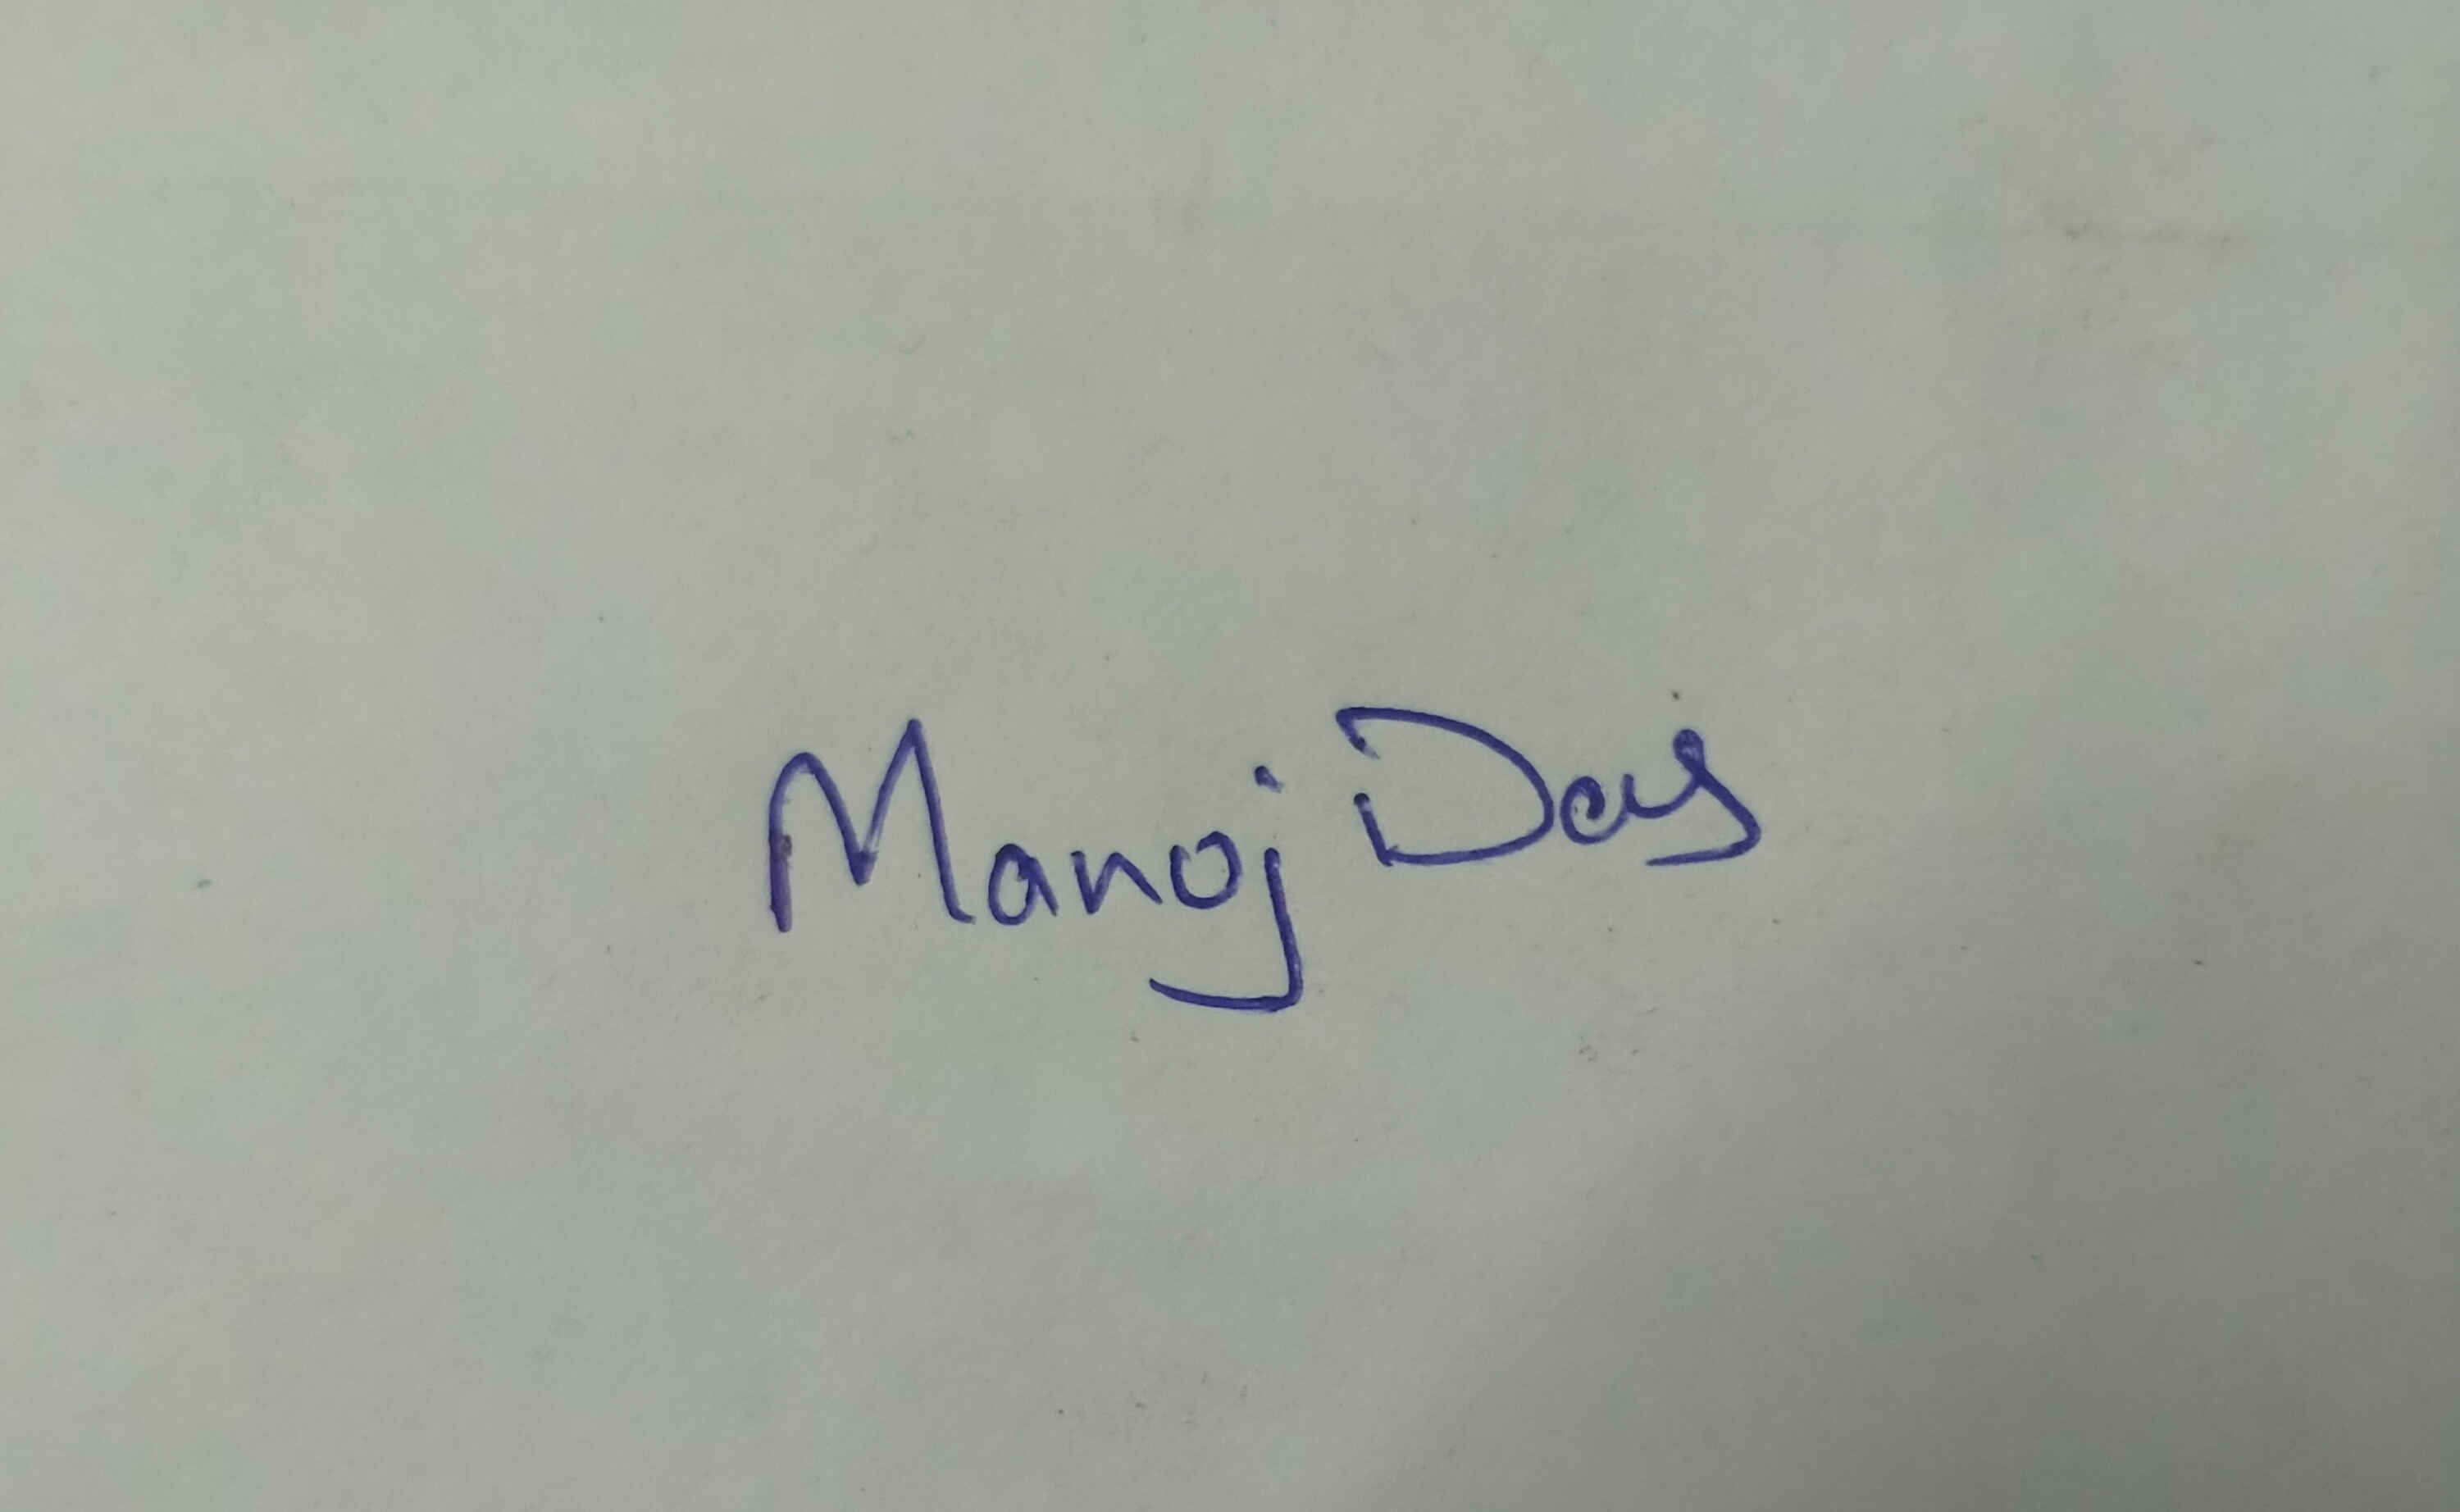 Manoj Das